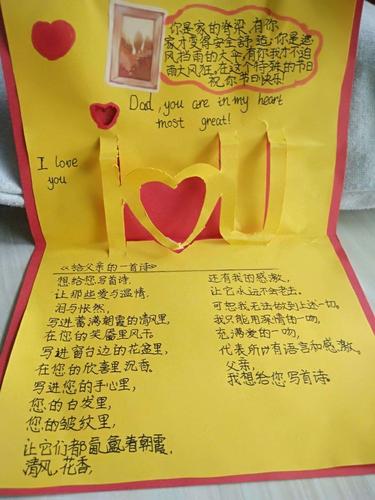 你是家的脊梁,有你
家才变得安全舒适;你是遮
风挡雨的大伞,有你我才不迫
雨大风狂。在这个特殊的节日
祝你节日快乐!
Dad, you are in my heart
most great!
I love
you
i U
《给父亲的一首诗》
想给您写首诗,
让那些爱与温情,
泪与怅然,
写进蓄满朝霞的清风里,
在您的笑靥里风干。
写进窗台边的花盆里,
在您的欣喜里沉香。
写进您的手心里,
您的白发里,
您的皱纹里,
让它们都氤氲着朝霞,
清风,花香,
还有我的感激,
让它永远不会老去。
可恕我无法做到上述一切。
我只能用深情的一吻,
充满爱的一吻,
代表所有语言和感激。
父亲,
我想给您写首诗。